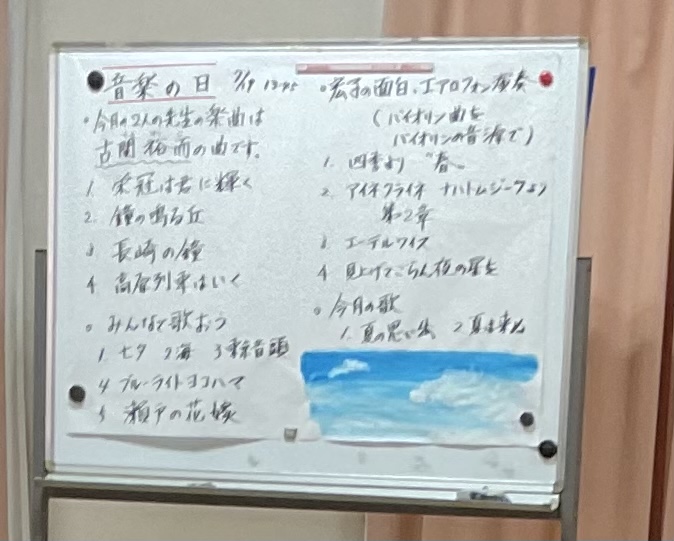 音楽の日 7/19 13:45
。今月の2人の先生の楽曲は
古関裕而の曲です。
1. 栄冠は君に輝く
2. 鐘の鳴る丘
3 長崎の鐘
4 高原列車はいく
。みんなで歌おう
1. 七夕 2海 3
4 ブルーライトヨコハマ
5 瀬戸の花嫁
。宏子の面白、エアロフォン演奏
(バイオリン曲を
バイオリンの音源で)
1. 四季より "春"
2. アイネクライネ ナハトムジークより
第2章
3 エーデルワイス
4 見上げてごらん夜の星を
。今月の歌
1. 夏の思い出 2 夏は来ぬ